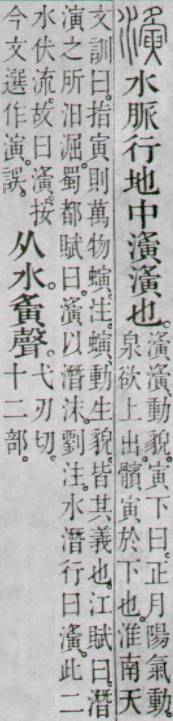 濥水脈行地中濥濥也。濥濥、動貌。寅下曰。正月陽氣動。
泉欲上出。髕寅於下也。淮南天
文訓曰。指寅則萬物螾。注。螾、動生貌。皆其義也。江賦曰。潛
演之所汨淈。蜀都賦曰。濥以潛沬。劉注。水潛行曰濥。此二
水伏流。故曰濥。按
今文選作演、誤。
从水。夤聲。弋刃切。
十二部。